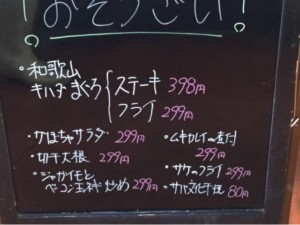 !おそうざい!
・和歌山
キハダまぐろ{ステーキ 398円
フライ 299円
・かぼちゃサラダ 299円
・切干大根 299円
・ジャガイモと
ベーコン玉ネギ炒め 299円
・ムキカレイの煮付
299円
・サケのフライ 299円
・サバ文化干し 80円